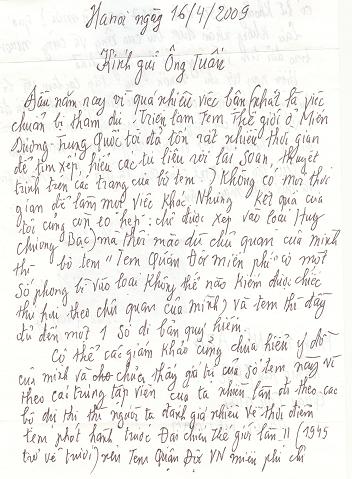 Hanoi ngày 16/4/2009
Kính gửi Ông Tuấn
Đầu năm nay vì quá nhiều việc bận (nhất là việc
chuẩn bị tham dự Triển lãm Tem Thế giới ở Miền
Dương - Trung Quốc tôi đã tốn rất nhiều thời gian
để tìm xếp, hiểu các tư liệu rồi lại soạn, thuyết
trình trên các trang của bộ tem) không có mọi thời
gian để làm mọi việc khác. Nhưng kết quả của
tôi cũng còn eo hẹp: chỉ được xếp vào loại Huy
chương Bạc) ma thôi mặc dù chủ quan của mình
thì bộ tem "Tem Quân Đội miễn phí" có một
số phong bì vào loại không thể nào kiếm được chiếc
thứ hai theo chủ quan của mình) và tem thì đầy
đủ đến một 1 số di bản quý hiếm.
Có thể các giám khảo cũng chưa hiểu ý đồ
của mình và chưa thấy giá trị của số tem này vì
theo các trung tập viên của ta nhiều lần đi theo các
bộ dự thi thì người ta đánh giá nhiều về thời điểm
tem phát hành trước Đại chiến thế giới lần II (1945
trở về trước) nên Tem Quân Đội VN miễn phí chỉ